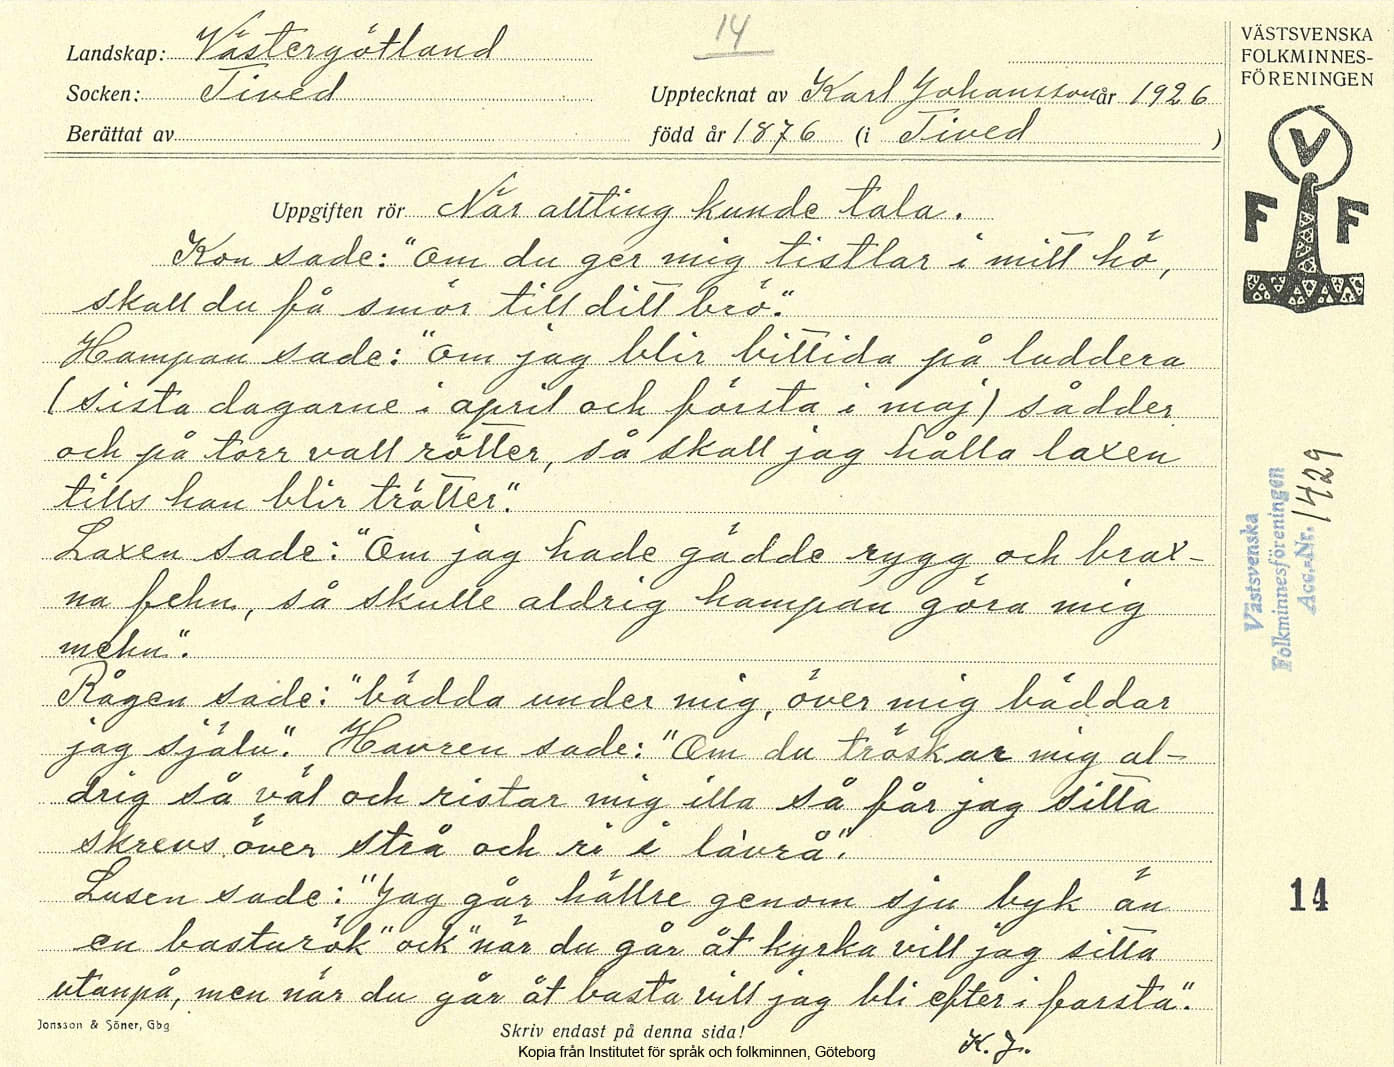 14
Landskap: Västergötland
Socken: Tived
Berättat av
Upptecknat av Karl Johansson år 1926
född år 1876 (i Tived )
VÄSTSVENSKA
FOLKMINNES-
FÖRENINGEN
V
F F
Uppgiften rör När allting kunde tala.
Kon sade: "Om du ger mig tistlar i mitt hö,
skall du få smör till ditt brö".
Hampan sade: "Om jag blir bittida på luddera
(sista dagarne i april och första i maj) sådder
och på torr vall rötter, så skall jag hålla laxen
tills han blir trötter".
Laxen sade: "Om jag hade gädde rygg och brax-
na fehn, så skulle aldrig hampan göra mig
mehn".
Rågen sade: "bädda under mig, över mig bäddar
jag själv". Havren sade: "Om du tröskar mig al-
drig så väl och ristar mig illa så får jag sitta
skrevs över strå och ri i lavrå".
Lusen sade: "Jag går hällre genom sju byk än
en basturök" ock "när du går åt kyrka vill jag sitta
utanpå, men när du går åt basta vill jag bli efter i farsta".
K. J.
Jonsson & Söner, Gbg
Skriv endast på denna sida!
Kopia från Institutet för språk och folkminnen, Göteborg
Västsvenska
Folkminnesföreningen
Acc.-Nr. 1429
14